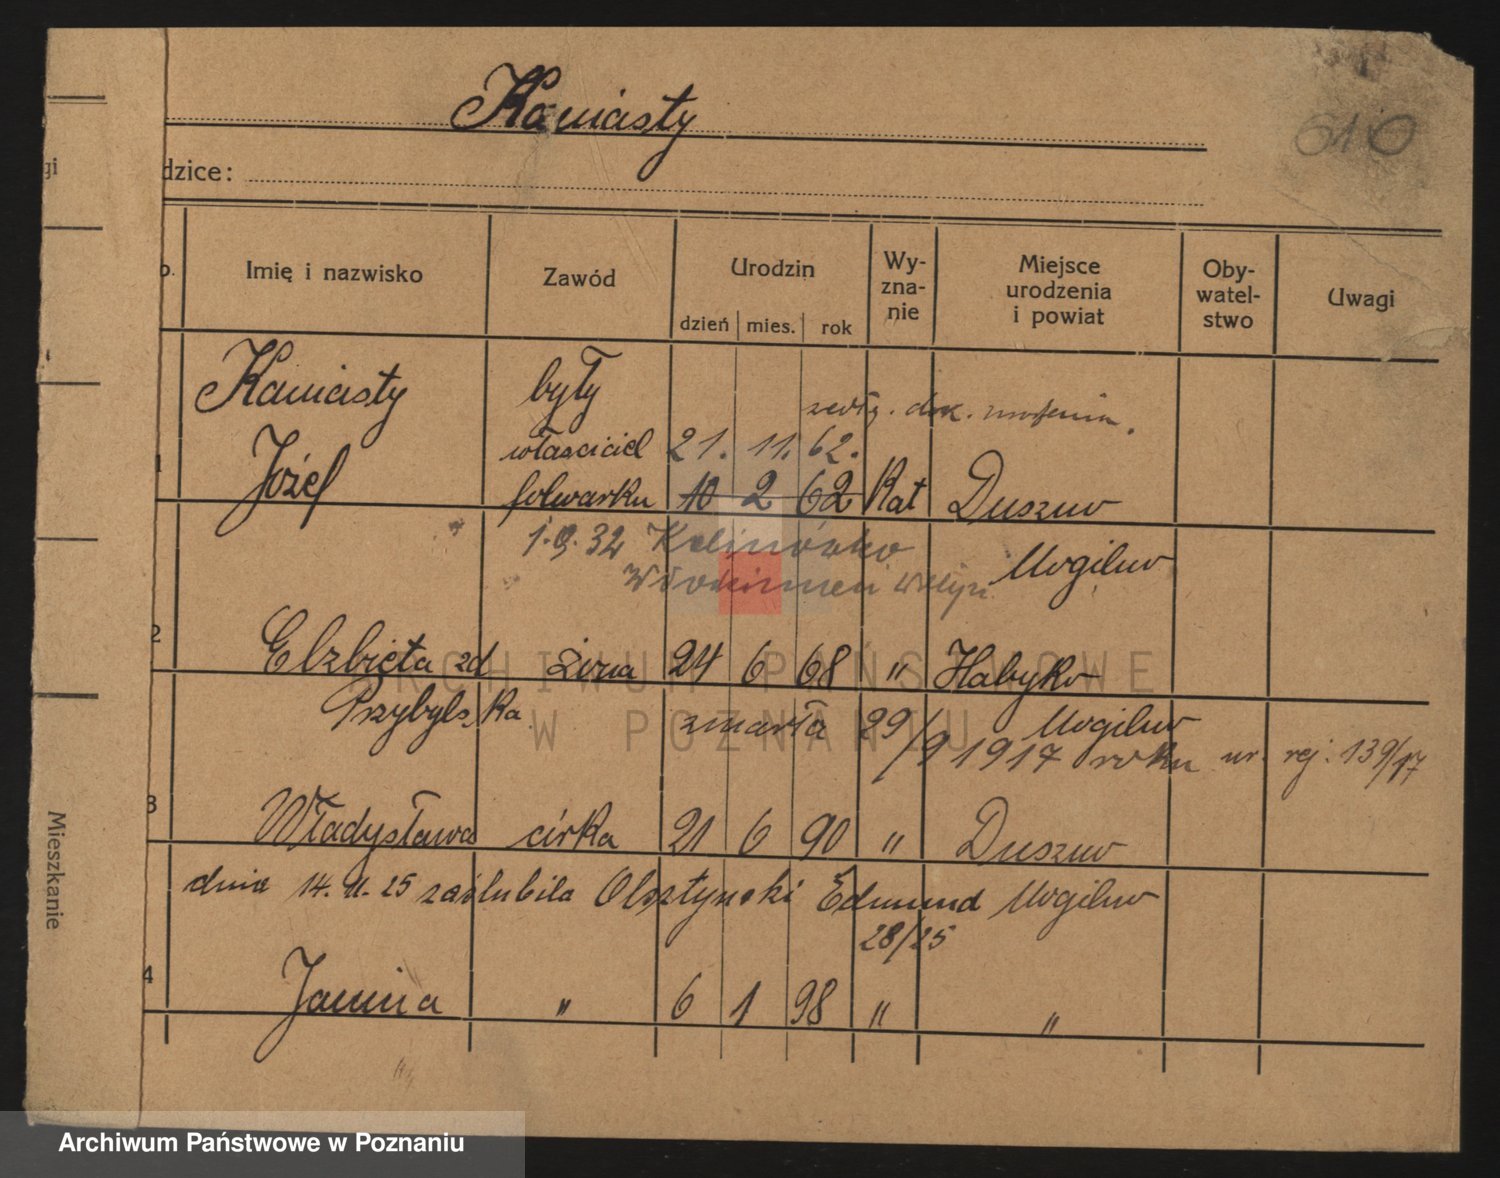 Kaniasty
610
gi
dzice:
p. Imię i nazwisko Zawód Urodzin dzień mies. rok Wy-znanie Miejsce urodzenia i powiat Oby-watel-stwo Uwagi
Kaniasty były
zedłg. dok. urodzenia.
właściciel 21. 11. 62.
1 Józef folwarku 10 2 62 Kat Duszno
1.9.32 Kalinówko Mogilno
Włodzimierz Wołyń
2 Elzbieta zd żona 24 6 68 " Habyko
Przybylska zmarła 29/9 1917 roku nr. rej. 139/17
Mogilno
3 Władysława córka 21 6 90 " Duszno
dnia 14. 11. 25 zaślubiła Olsztynski Edmund Mogilno
28/25
4 Janina " 6 1 98 " "
Mieszkanie
ARCHIWUM PAŃSTWOWE
W POZNANIU
Archiwum Państwowe w Poznaniu